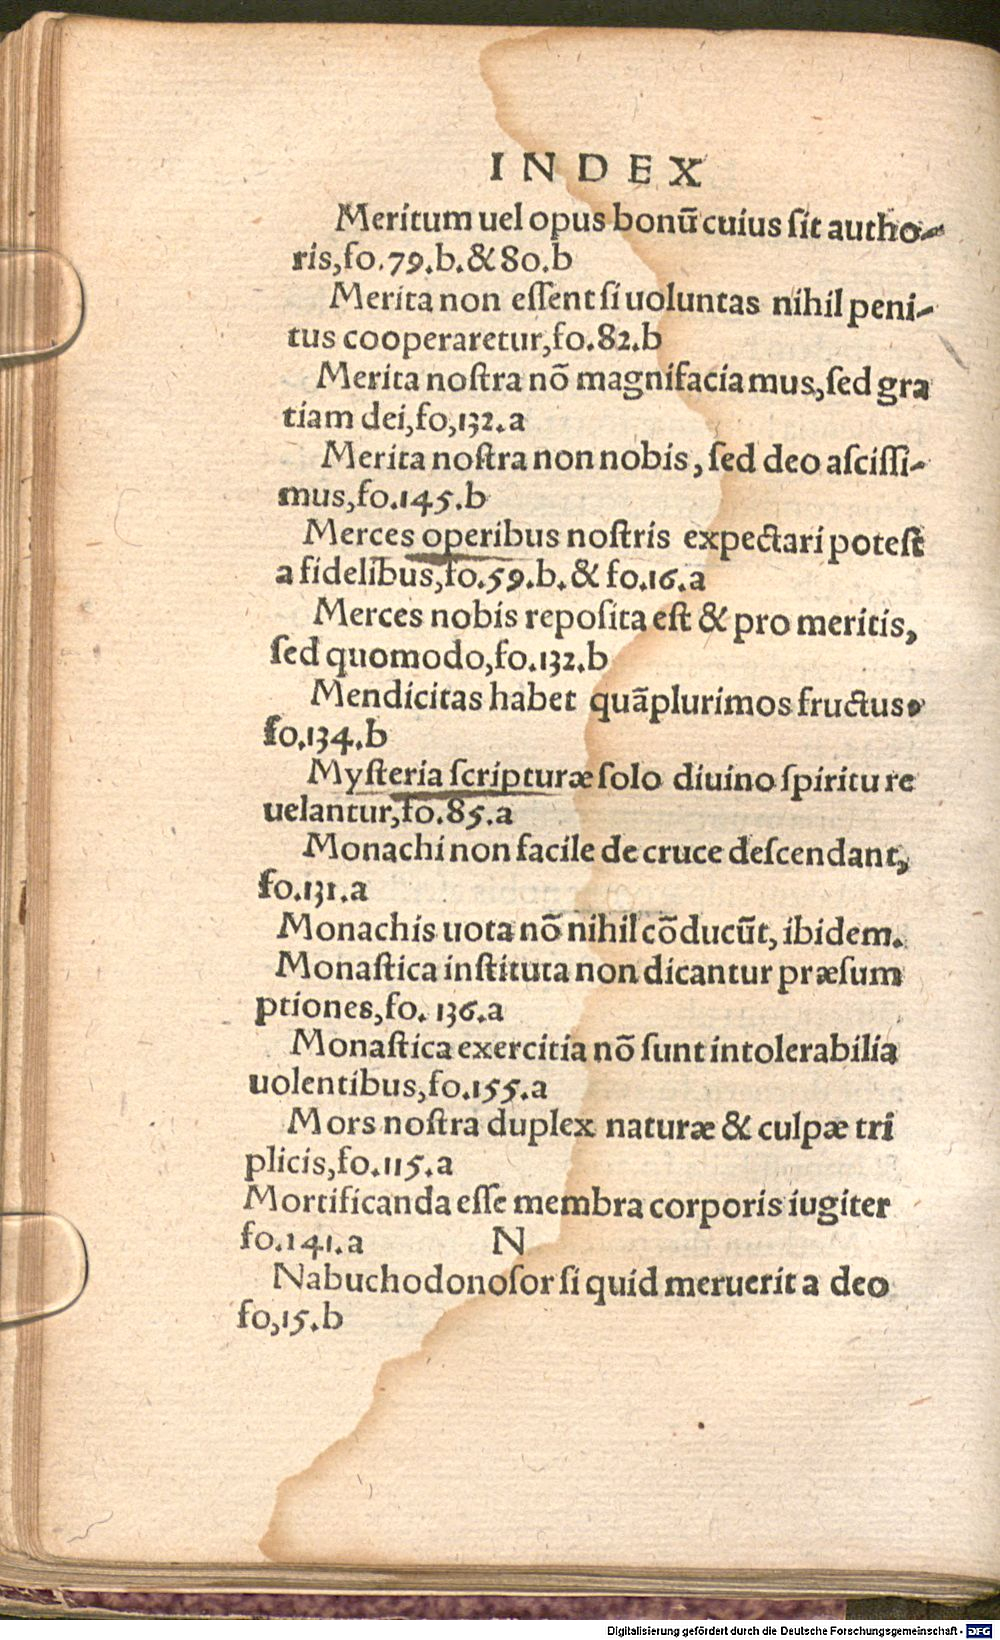 INDEX
Meritum uel opus bonũ cuius ſit autho-
ris, fo.79.b.& 80.b
Merita non eſſent ſi uoluntas nihil peni-
tus cooperaretur, fo.82.b
Merita noſtra nõ magnifaciamus, ſed gra
tiam dei, fo, 132.a
Merita noſtra non nobis, ſed deo aſciſſi-
mus, fo.145.b
Merces operibus noſtris expectari poteſt
a fidelibus, fo.59.b.& fo.16.a
Merces nobis repoſita eſt & pro meritis,
ſed quomodo, fo.132.b
Mendicitas habet quãplurimos fructus.
fo.134.b
Myſteria ſcripturæ ſolo diuino ſpiritu re
uelantur, fo.85.a
Monachi non facile de cruce deſcendant,
fo.131.a
Monachis uota nõ nihil cõducũt, ibidem.
Monaſtica inſtituta non dicantur præſum
ptiones, fo. 136.a
Monaſtica exercitia nõ ſunt intolerabilia
uolentibus, fo.155.a
Mors noſtra duplex naturæ & culpæ tri
plicis, fo.115.a
Mortificanda eſſe membra corporis iugiter
fo.141.a N
Nabuchodonoſor ſi quid meruerit a deo
fo, 15.b
Digitalisierung gefördert durch die Deutsche Forschungsgemeinschaft - DFG